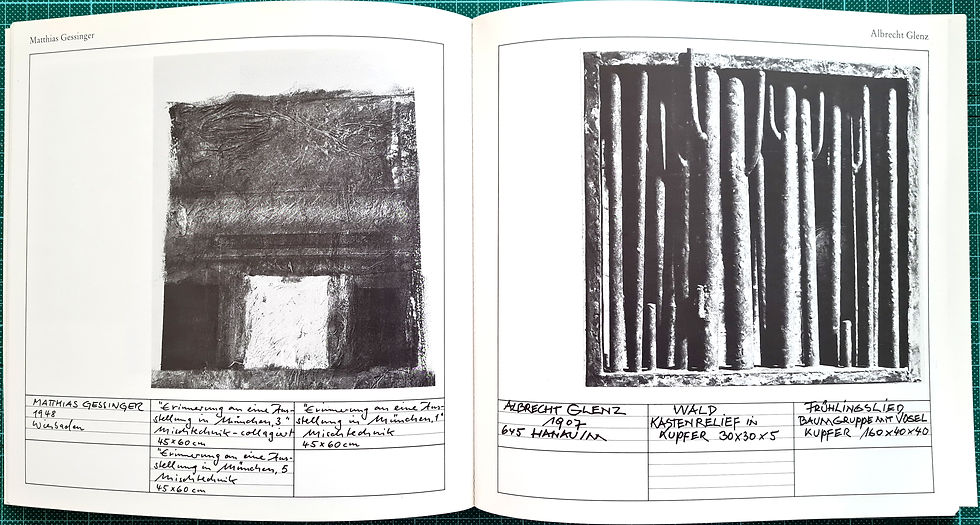 Matthias Gessinger
MATTHIAS GESSINGER
1948
Wiesbaden
"Erinnerung an eine Aus-
stellung in München, 3"
Mischtechnik-collagiert
45x60cm
"Erinnerung an eine Aus-
stellung in München, 5
Mischtechnik
45x60cm
"Erinnerung an eine Aus-
stellung in München, 1"
Mischtechnik
45x60cm
Albrecht Glenz
ALBRECHT GLENZ
1907
645 HANAU/M
WALD
KASTENRELIEF IN
KUPFER 30x30x5
FRÜHLINGSLIED
BAUMGRUPPE MIT VÖGEL
KUPFER 160x40x40